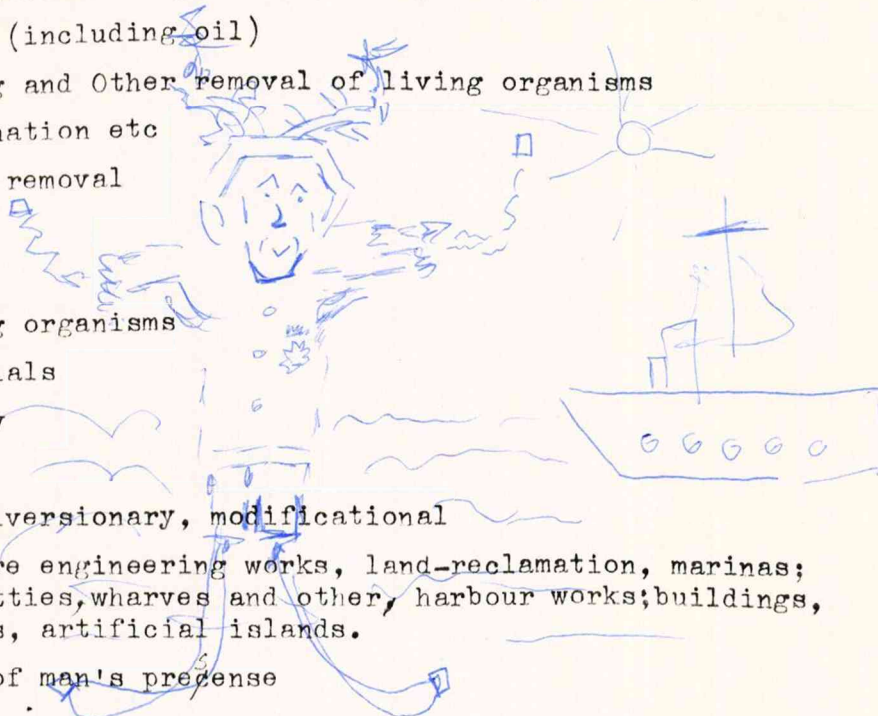 (including oil)
g and Other removal of living organisms
nation etc
removal
g organisms
ials
y
versionary, modificational
re engineering works, land-reclamation, marinas;
tties,wharves and other, harbour works;buildings,
s, artificial islands.
of man's presense